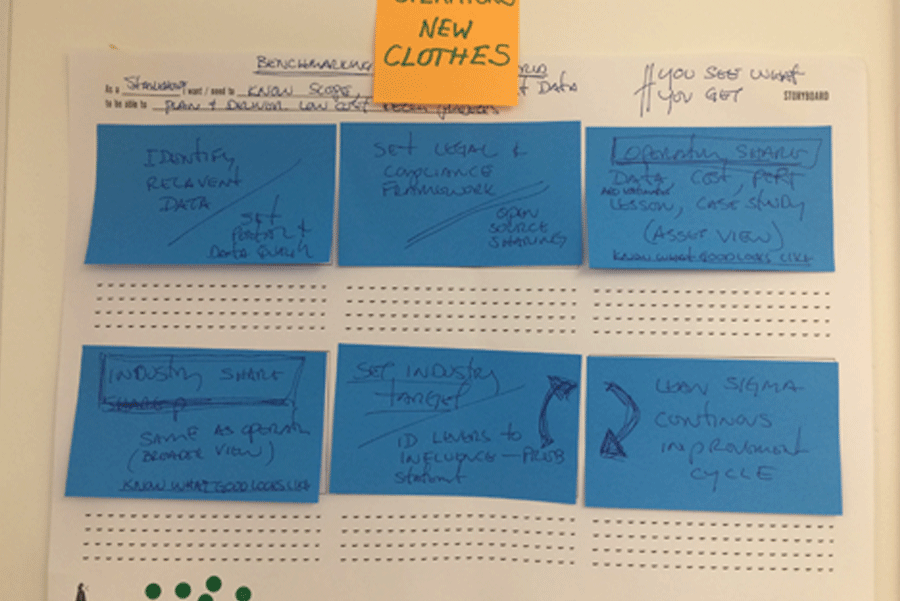 NEW
CLOTHES
BENCHMARKING
#YOU SEE WHAT
YOU GET
STORYBOARD
As a I want / need to KNOW SCOPE, DATA
to be able to PLAN + DELIVER LOW COST
IDENTIFY
RELAVENT
DATA
SET
PORTAL +
DATA
SET LEGAL +
COMPLIANCE
FRAMEWORK
OPEN
SOURCE
SHARING
OPERATOR SHARE
DATA, COST, PERF
LESSON, CASE STUDY
(ASSET VIEW)
KNOW WHAT GOOD LOOKS LIKE
INDUSTRY SHARE
SAME AS OPERATOR
(BROADER VIEW)
KNOW WHAT GOOD LOOKS LIKE
SET INDUSTRY
TARGET
ID LEVERS TO
INFLUENCE - PROB
LEAN SIGMA
CONTINOUS
IMPROVEMENT
CYCLE